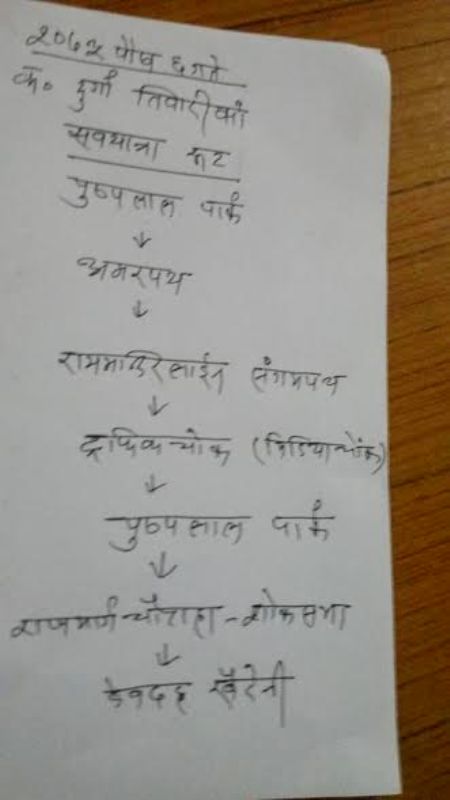 २०७२ पौष ६ गते
क० दुर्गा तिवारीको
सवयात्रा रुट
पुष्पलाल पार्क
↓
अमरपथ
↓
राममन्दिरलाईन संगमपथ
↓
ट्राफिक चोक (मिडियाचोक)
↓
पुष्पलाल पार्क
↓
राजमार्ग चौराहा - शोकसभा
↓
देवदह खैरेनी